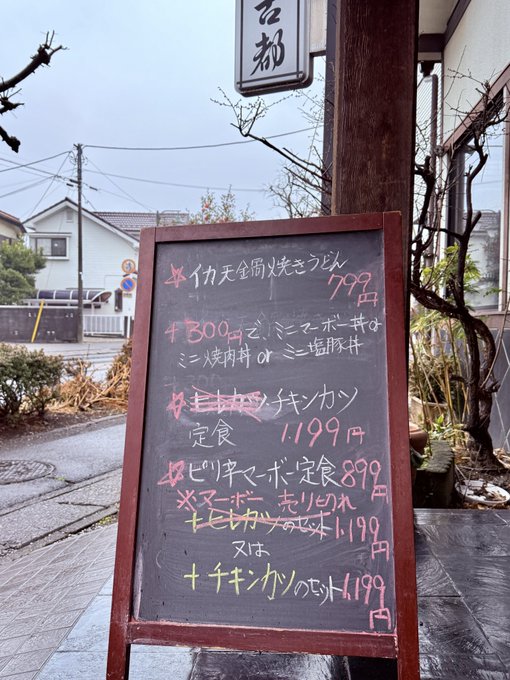 古都
☆イカ天鍋焼きうどん
799円
+300円で、ミニマーボー丼or
ミニ焼肉丼 or ミニ塩豚丼
☆ヒレカツ、チキンカツ
定食 1.199円
☆ピリ辛マーボー定食899円
※マーボー 売り切れ
+ヒレカツのセット1,199円
又は
+チキンカツのセット1,199円